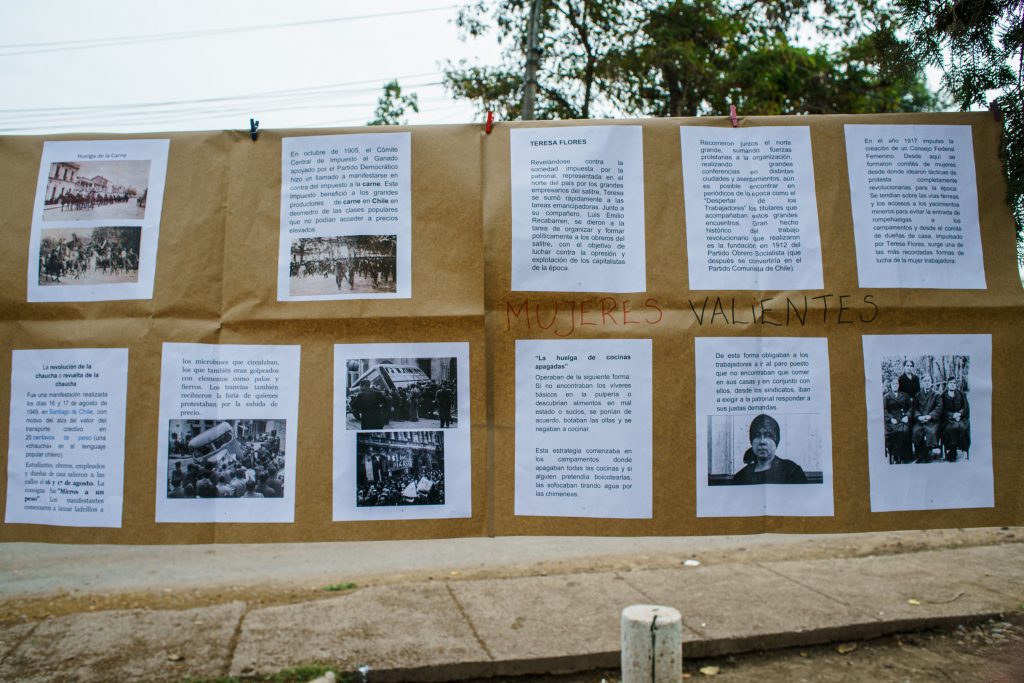 Huelga de la Carne
En octubre de 1905, el Cómite
Central de Impuesto al Ganado
apoyado por el Partido Democrático
hizo un llamado a manifestarse en
contra del impuesto a la carne. Este
impuesto beneficio a los grandes
productores de carne en Chile en
desmedro de las clases populares
que no podían acceder a precios
elevados
TERESA FLORES
Revelándose contra la
sociedad impuesta por la
patronal, representada en el
norte del país por los grandes
empresarios del salitre, Teresa
se sumó rápidamente a las
tareas emancipadoras. Junto a
su compañero, Luis Emilio
Recabarren, se dieron a la
tarea de organizar y formar
políticamente a los obreros del
salitre, con el objetivo de
luchar contra la opresión y
explotación de los capitalistas
de la época.
Recorrieron juntos el norte
grande, sumando fuerzas
proletarias a la organización,
realizando grandes
conferencias en distintas
ciudades y asentamientos, aún
es posible encontrar en
periódicos de la época como el
"Despertar de los
Trabajadores" los titulares que
acompañaban estos grandes
encuentros. Gran hecho
histórico del trabajo
revolucionario que realizaron
es la fundación en 1912 del
Partido Obrero Socialista (que
después se convertiría en el
Partido Comunista de Chile).
En el año 1917 impulsó la
creación de un Consejo Federal
Femenino. Desde aquí se
formaron comités de mujeres
desde donde idearon tácticas de
protesta completamente
revolucionarias para la época.
Se tendían sobre las vías férreas
y los accesos a los yacimientos
mineros para evitar la entrada de
rompehuelgas a los
campamentos y desde el comité
de dueñas de casa, impulsado
por Teresa Flores, surge una de
las más recordadas formas de
lucha de la mujer trabajadora:
MUJERES VALIENTES
La revolución de la
chaucha o revuelta de la
chaucha
Fue una manifestación realizada
los días 16 y 17 de agosto de
1949, en Santiago de Chile, con
motivo del alza del valor del
transporte colectivo en
20 centavos de peso (una
«chaucha» en el lenguaje
popular chileno).
Estudiantes, obreros, empleados
y dueñas de casa salieron a las
calles el 16 y 17 de agosto. La
consigna fue "Micros a un
peso". Los manifestantes
comenzaron a lanzar ladrillos a
los microbuses que circulaban,
los que también eran golpeados
con elementos como palos y
fierros. Los tranvías también
recibieron la furia de quienes
protestaban por la subida de
precio.
"La huelga de cocinas
apagadas"
Operaban de la siguiente forma:
Si no encontraban los víveres
básicos en la pulpería o
descubrían alimentos en mal
estado o sucios, se ponían de
acuerdo, botaban las ollas y se
negaban a cocinar.
Esta estrategia comenzaba en
los campamentos donde
apagaban todas las cocinas y si
alguien pretendía boicotearlas,
las sofocaban tirando agua por
las chimeneas.
De esta forma obligaban a los
trabajadores a ir al paro puesto
que no encontraban que comer
en sus casas y en conjunto con
ellos, desde los sindicatos, iban
a exigir a la patronal responder a
sus justas demandas.